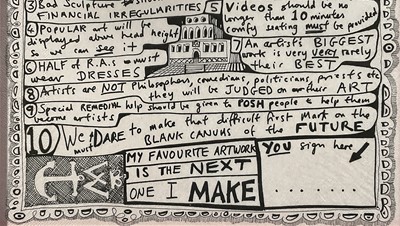 ③ Bad Sculpture
FINANCIAL IRREGULARITIES
④ POPULAR art will be
displayed above head height
so we can see it
⑤ Videos should be no
longer than 10 minutes
comfy seating must be provided
⑥ HALF of R.A.s must
wear DRESSES
⑦ An artist's BIGGEST
art is very very rarely
their BEST
⑧ Artists are NOT Philosophers, comedians, politicians, priests etc
they will be JUDGED on their ART
⑨ Special REMEDIAL help should be given to POSH people to help them
become artists
10 We must DARE to make that difficult first mark on the
BLANK CANVAS of the FUTURE
MY FAVOURITE ARTWORK
IS THE NEXT
ONE I MAKE
YOU sign here
. . . . . . . .